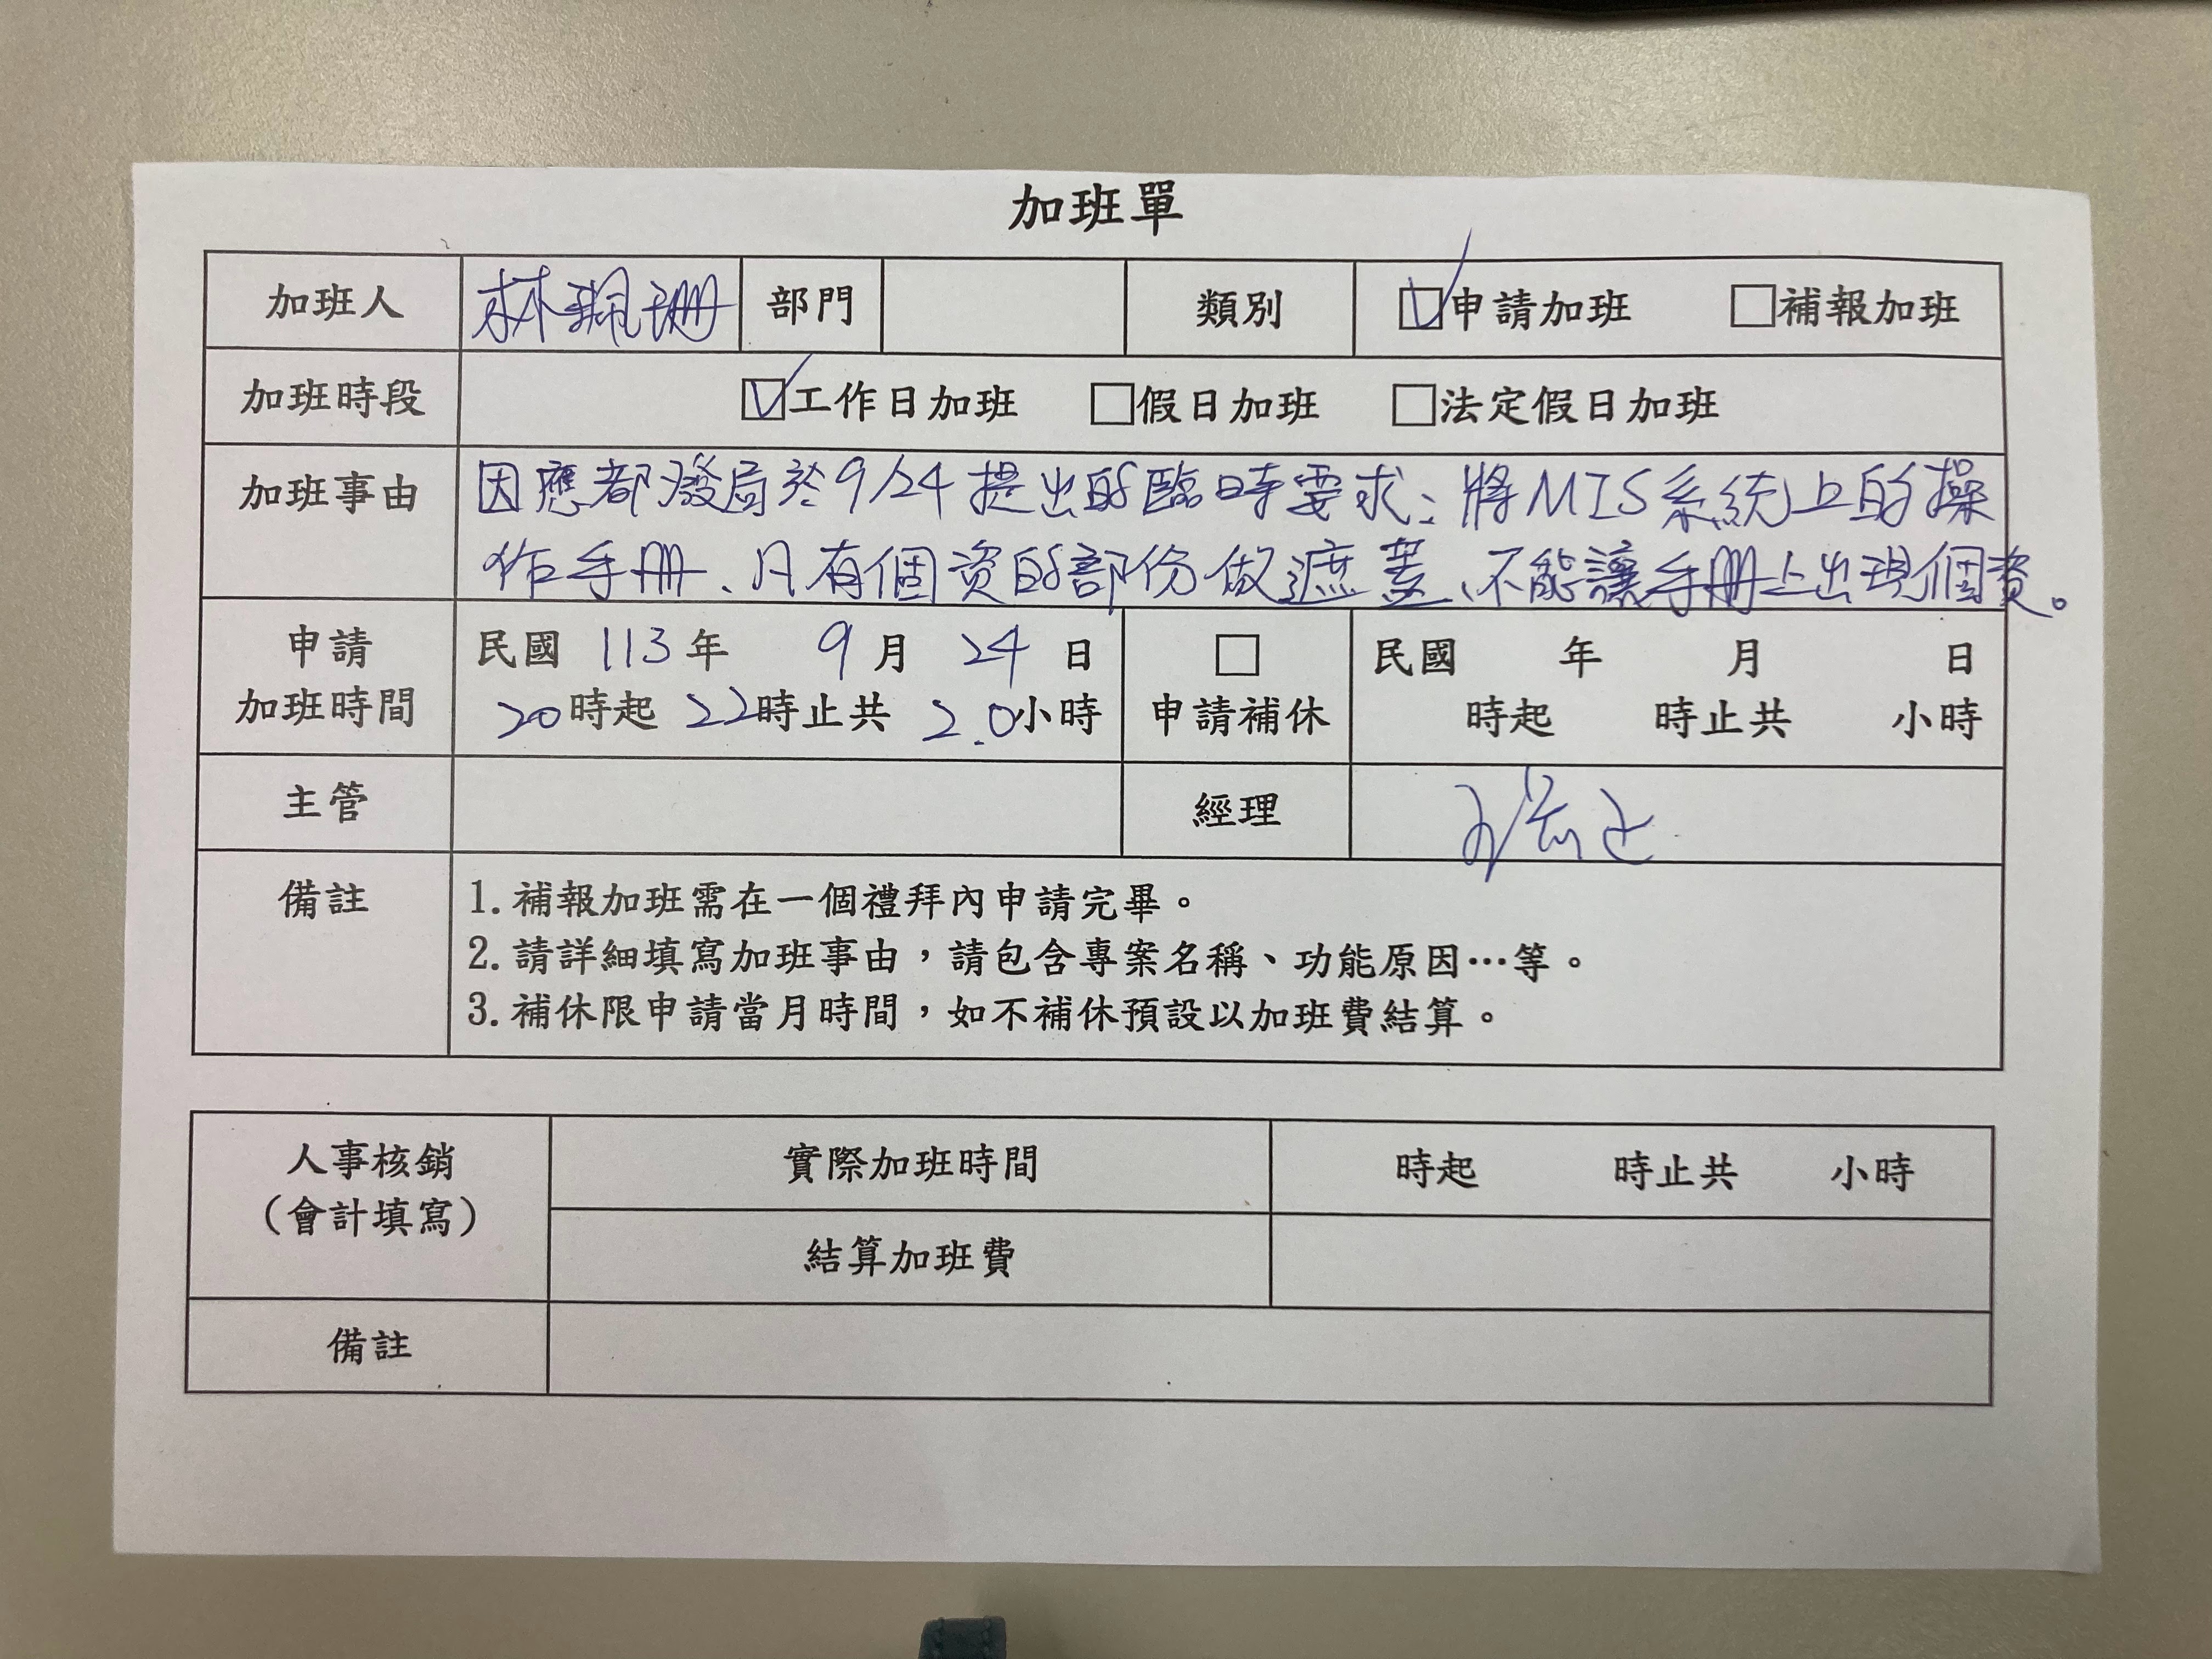 加班單
加班人 林珮珊 部門 類別 ☑申請加班 □補報加班
加班時段 ☑工作日加班 □假日加班 □法定假日加班
加班事由 因應都發局於9/24提出的臨時要求:將MIS系統上的操
作手冊、凡有個資的部份做遮蓋、不能讓手冊上出現個資。
申請 民國 113 年 9 月 24 日 □ 民國 年 月 日
加班時間 20時起 22時止共 2.0小時 申請補休 時起 時止共 小時
主管 經理
備註 1.補報加班需在一個禮拜內申請完畢。
2.請詳細填寫加班事由,請包含專案名稱、功能原因…等。
3.補休限申請當月時間,如不補休預設以加班費結算。
人事核銷 實際加班時間 時起 時止共 小時
(會計填寫)
結算加班費
備註